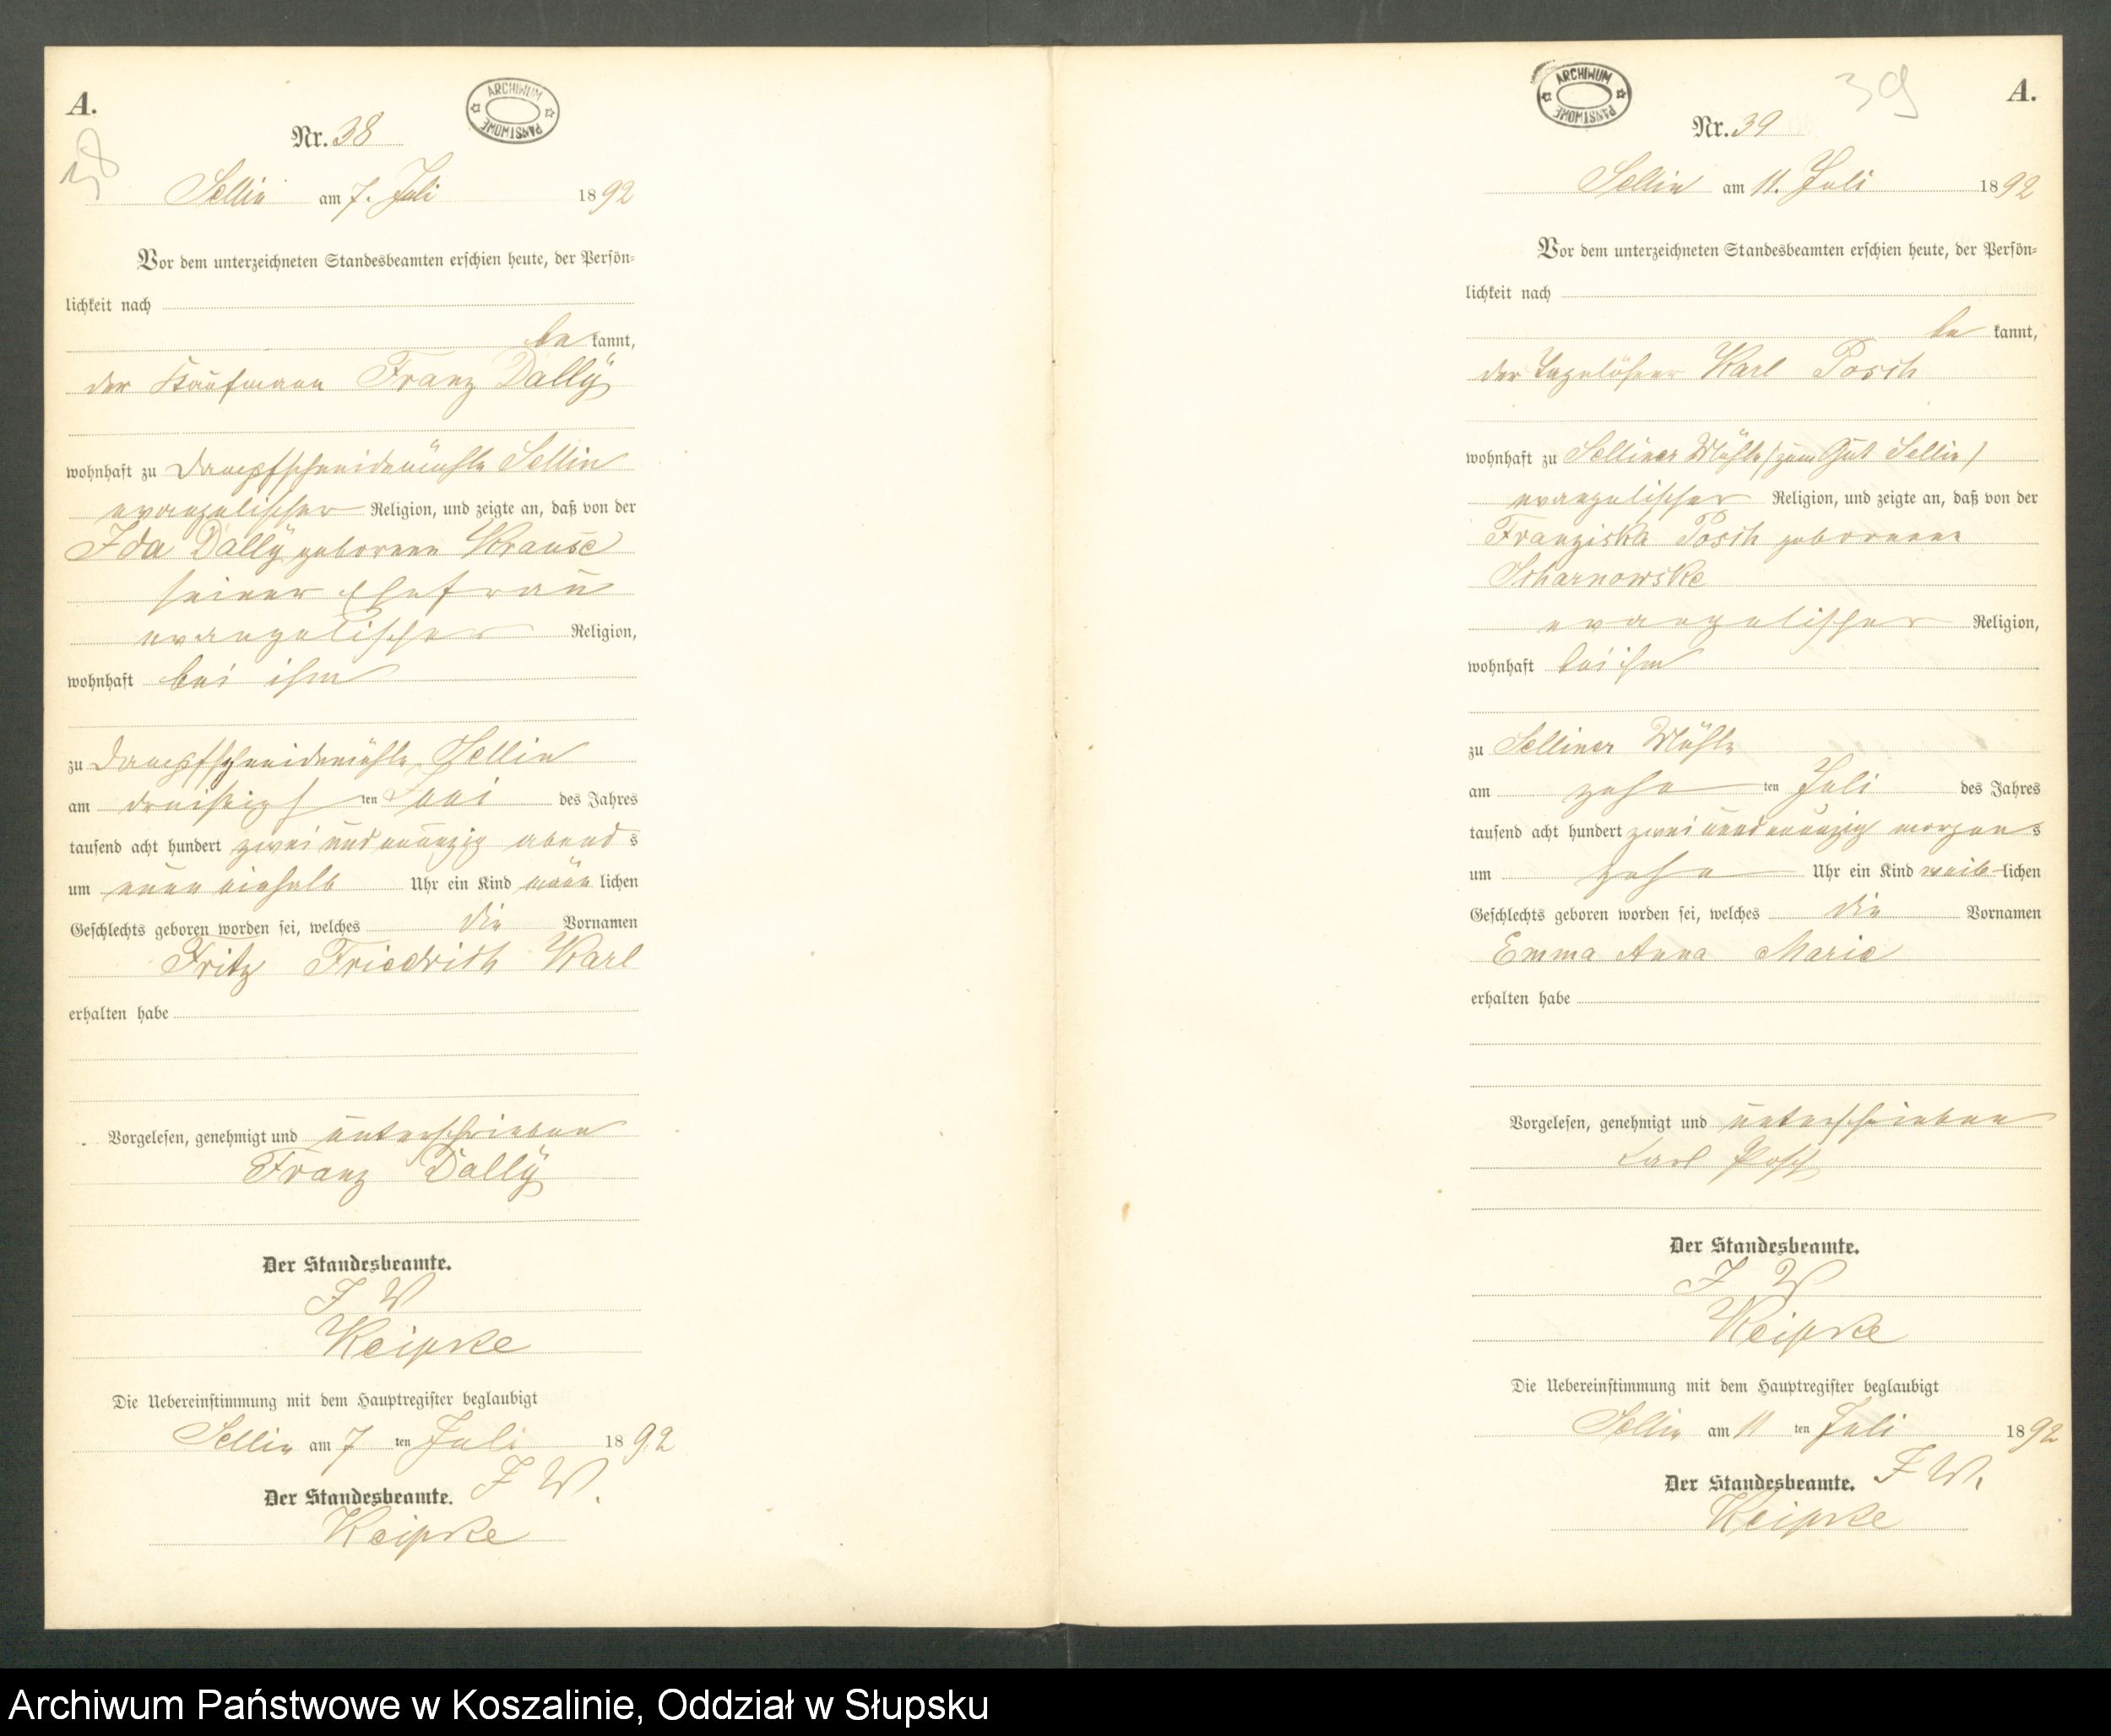 A.
38
ARCHIWUM PAŃSTWOWE
Nr. 38
Sellin am 7. Juli 1892
Vor dem unterzeichneten Standesbeamten erschien heute, der Persön=
lichkeit nach
be kannt,
der Kaufmann Franz Dallÿ
wohnhaft zu Dampfschneidemühle Sellin
evangelischer Religion, und zeigte an, daß von der
Ida Dallÿ geborene Krause
seiner Ehefrau
evangelischer Religion,
wohnhaft bei ihm
zu Dampfschneidemühle Sellin
am dreißigs ten Juni des Jahres
tausend acht hundert zwei und neunzig abend s
um neun einhalb Uhr ein Kind männ lichen
Geschlechts geboren worden sei, welches die Vornamen
Fritz Friedrich Karl
erhalten habe
Vorgelesen, genehmigt und unterschrieben
Franz Dallÿ
Der Standesbeamte.
J W
Keipke
Die Uebereinstimmung mit dem Hauptregister beglaubigt
Sellin am 7 ten Juli 1892
Der Standesbeamte. J W.
Keipke
A.
39
ARCHIWUM PAŃSTWOWE
Nr. 39
Sellin am 11. Juli 1892
Vor dem unterzeichneten Standesbeamten erschien heute, der Persön=
lichkeit nach
be kannt,
der Tagelöhner Karl Posch
wohnhaft zu Selliner Mühle (zum Gut Sellin)
evangelischer Religion, und zeigte an, daß von der
Franziska Posch geborenen
Scharnowske
evangelischer Religion,
wohnhaft bei ihm
zu Selliner Mühle
am zehn ten Juli des Jahres
tausend acht hundert zwei und neunzig morgen s
um zehn Uhr ein Kind weib lichen
Geschlechts geboren worden sei, welches die Vornamen
Emma Anna Marie
erhalten habe
Vorgelesen, genehmigt und unterschrieben
Karl Posch
Der Standesbeamte.
J W
Keipke
Die Uebereinstimmung mit dem Hauptregister beglaubigt
Sellin am 11 ten Juli 1892
Der Standesbeamte. J W.
Keipke
Archiwum Państwowe w Koszalinie, Oddział w Słupsku